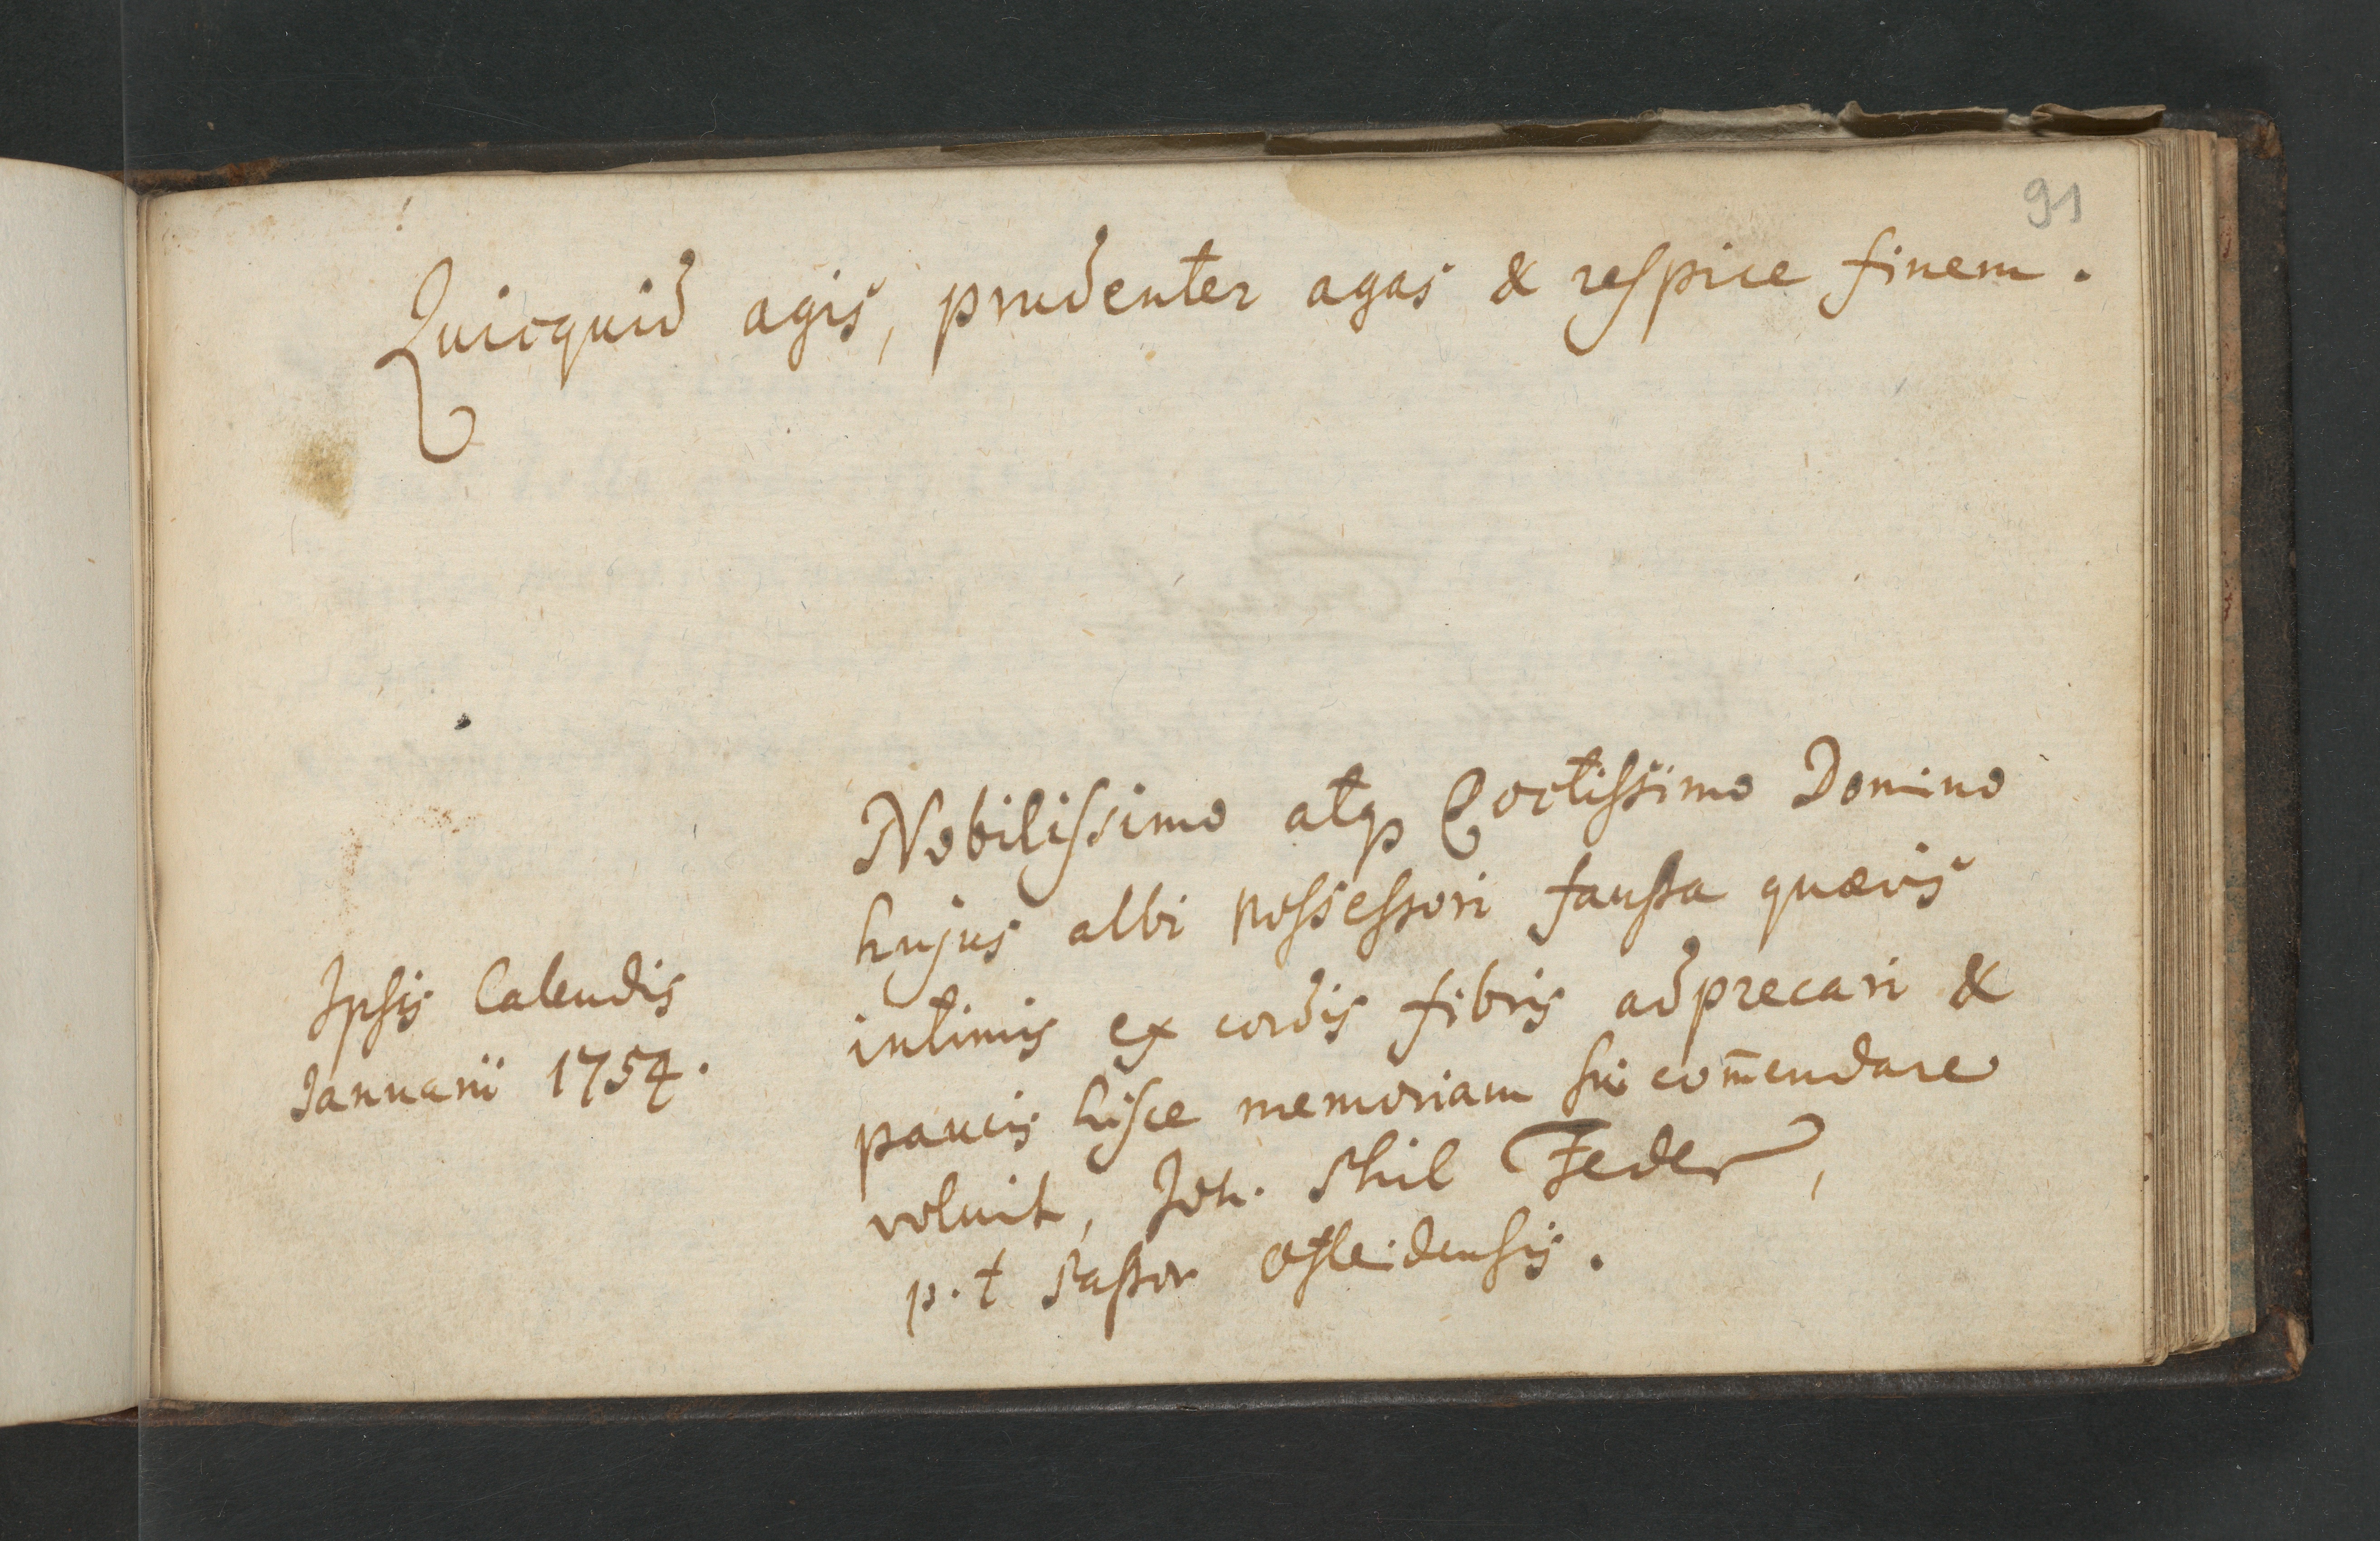 91
Quicquid agis, prudenter agas & respice finem.
Nobilissimo atq Doctissimo Domino
hujus albi possessori fausta quævis
intimis ex cordis fibris adprecari &
paucis hisce memoriam sui com̅endare
voluit, Joh. Phil Feder,
p. t Pastor
Ipsis Calendis
Januarii 1754.